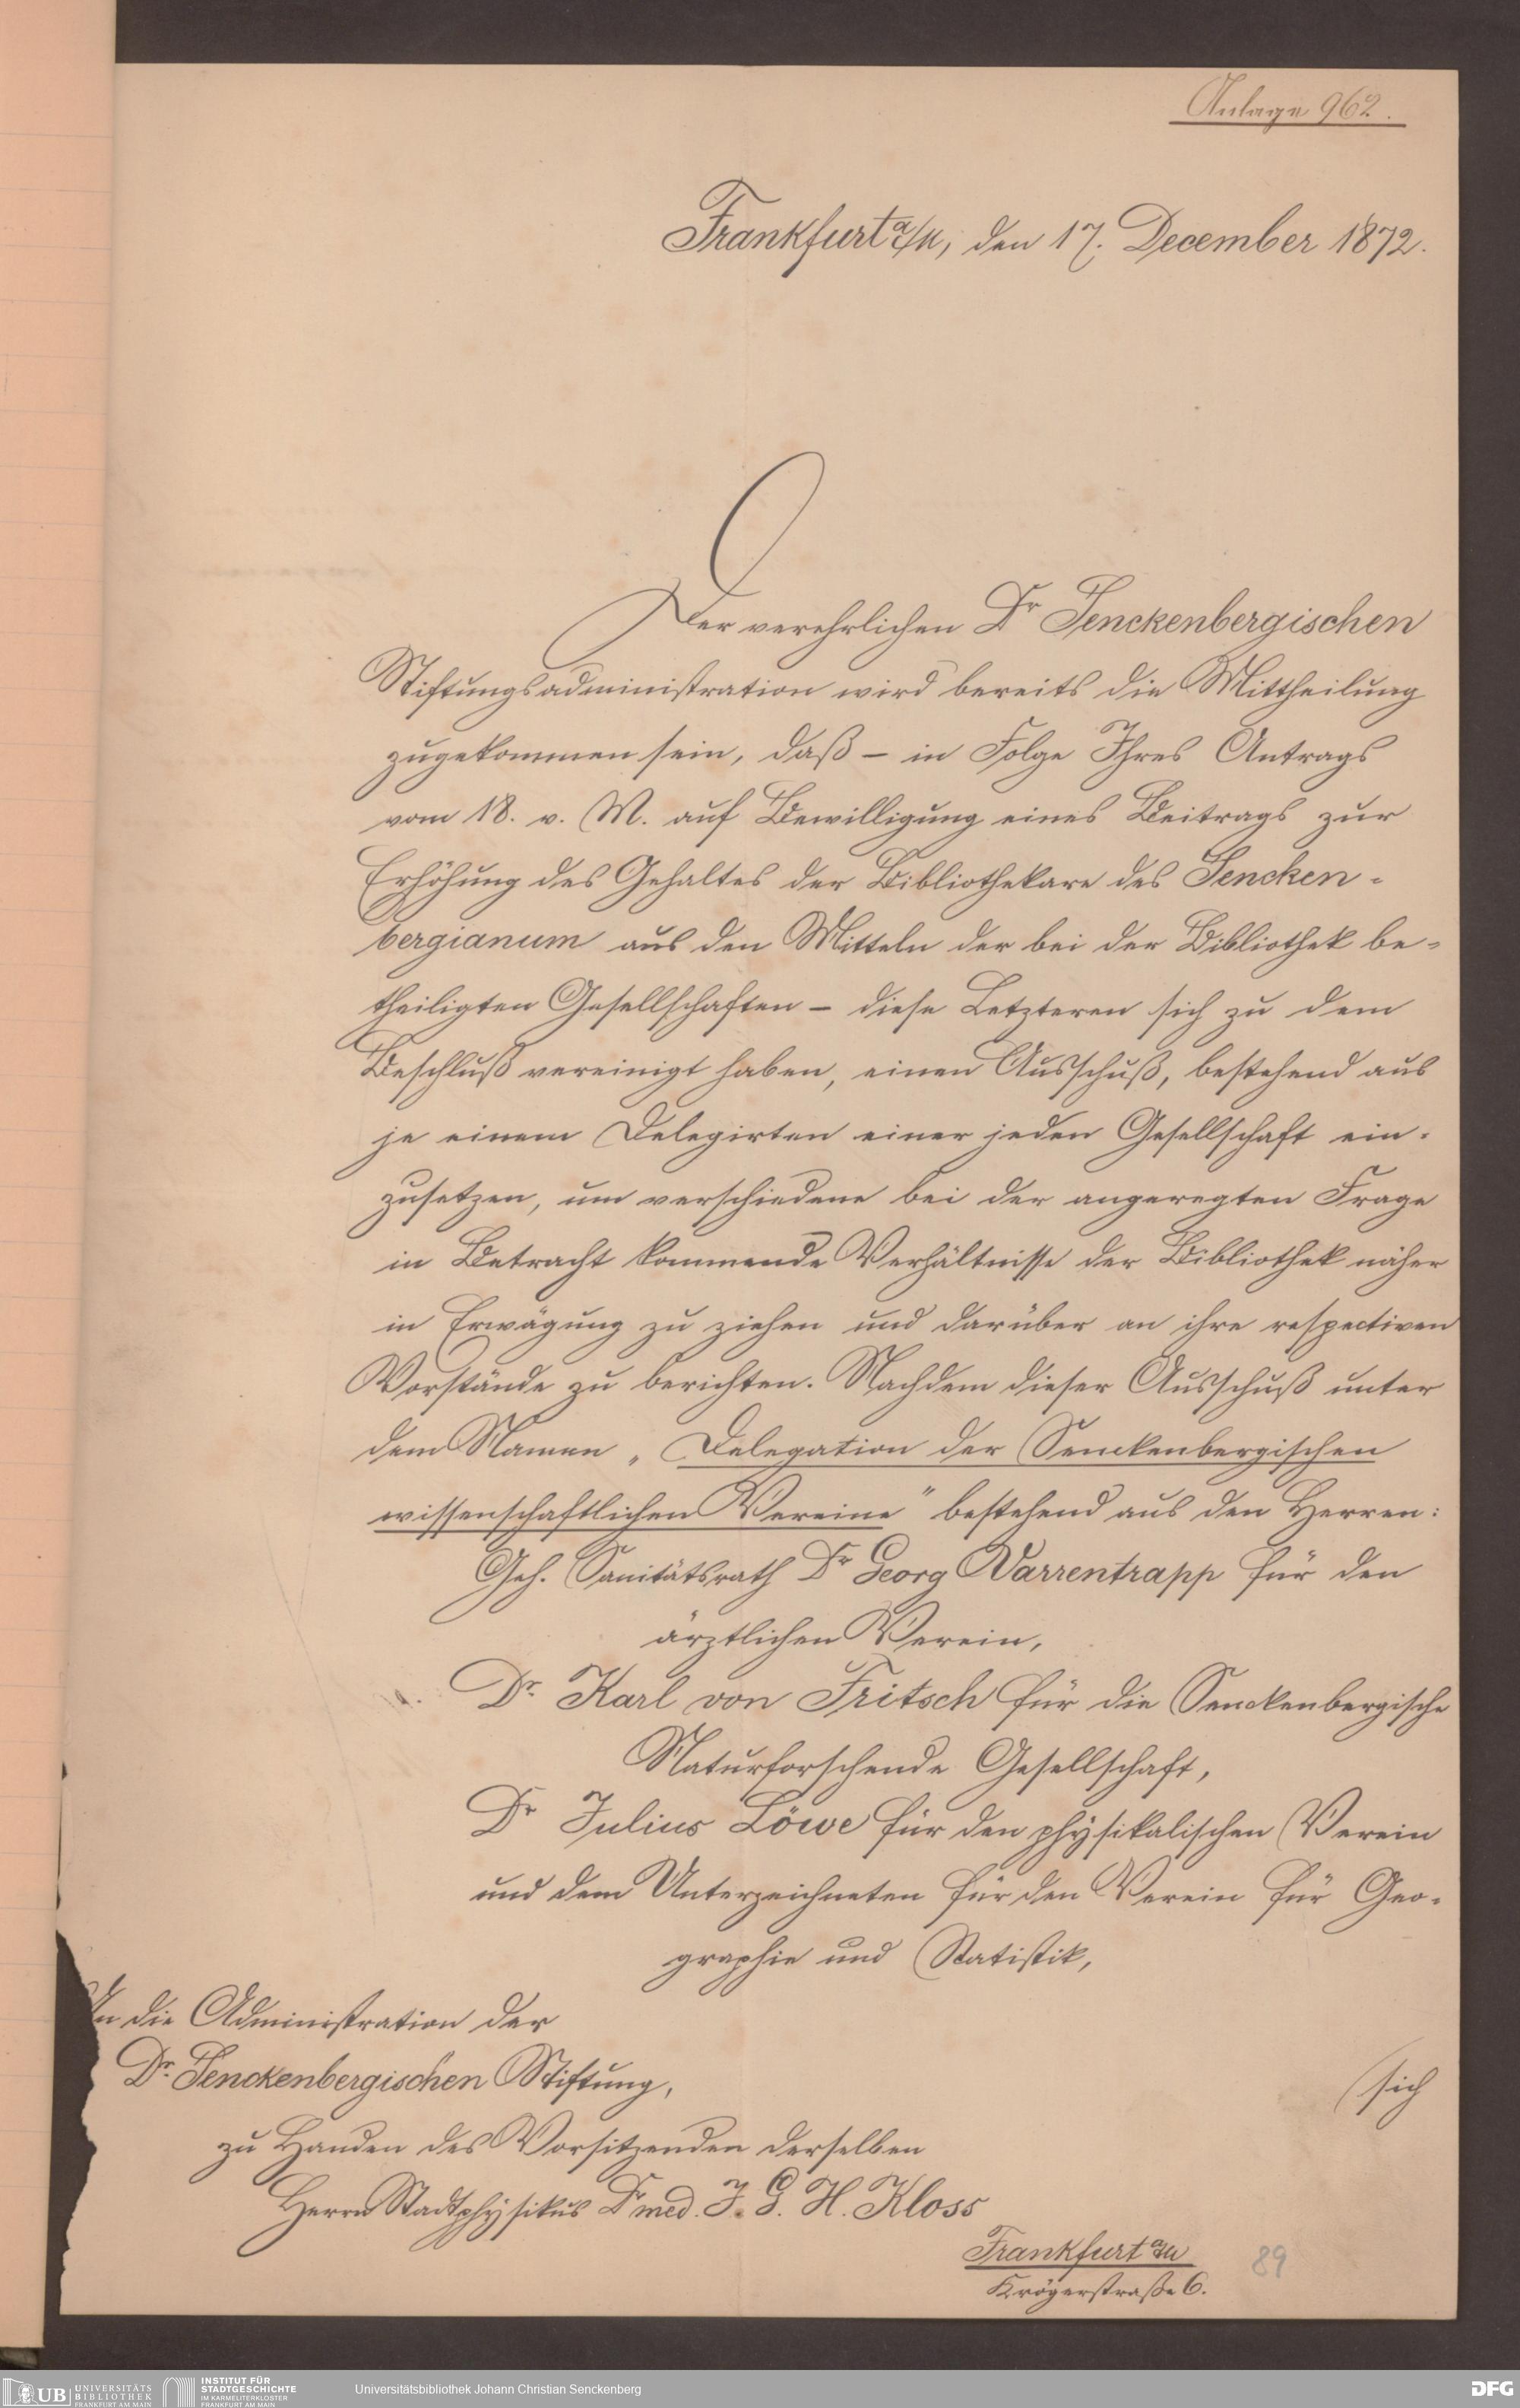 Anlage 962.
Frankfurt a/M, den 17. December 1872.
Der verehrlichen Dr Senckenbergischen
Stiftungsadministration wird bereits die Mittheilung
zugekommen sein, daß – in Folge Ihres Antrags
vom 18. v. M. auf Bewilligung eines Beitrags zur
Erhöhung des Gehaltes der Bibliothekare des Sencken-
bergianum aus den Mitteln der bei der Bibliothek be-
theiligten Gesellschaften – diese Letzteren sich zu dem
Beschluß vereinigt haben, einen Ausschuß, bestehend aus
je einem Delegirten einer jeden Gesellschaft ein-
zusetzen, um verschiedene bei der angeregten Frage
in Betracht kommende Verhältnisse der Bibliothek näher
in Erwägung zu ziehen und darüber an ihre respectiven
Vorstände zu berichten. Nachdem dieser Ausschuß unter
dem Namen „Delegation der Senckenbergischen
wissenschaftlichen Vereine" bestehend aus den Herren:
Geh. Sanitätsrath Dr Georg Varrentrapp für den
ärztlichen Verein,
Dr. Karl von Fritsch für die Senckenbergische
Naturforschende Gesellschaft,
Dr Julius Löwe für den physikalischen Verein
und dem Unterzeichneten für den Verein für Geo-
graphie und Statistik,
An die Administration der
Dr. Senckenbergischen Stiftung,
sich
zu Handen des Vorsitzenden derselben
Herrn Stadtphysikus Dr med. J. G. H. Kloss
Frankfurt a/M
Krögerstraße 6.
89
UB UNIVERSITÄTS BIBLIOTHEK FRANKFURT AM MAIN
INSTITUT FÜR STADTGESCHICHTE IM KARMELITERKLOSTER FRANKFURT AM MAIN
Universitätsbibliothek Johann Christian Senckenberg
DFG